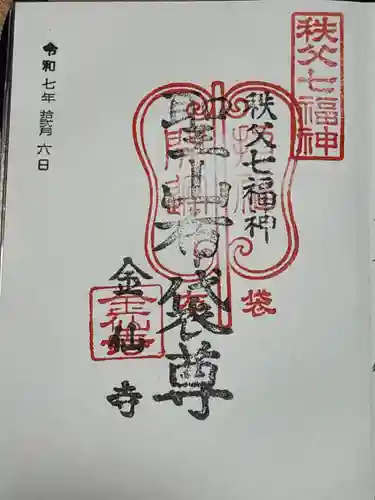 秩父七福神
秩父七福神
聖山布袋尊
布袋
金仙寺
令和七年 拾弐月 六日